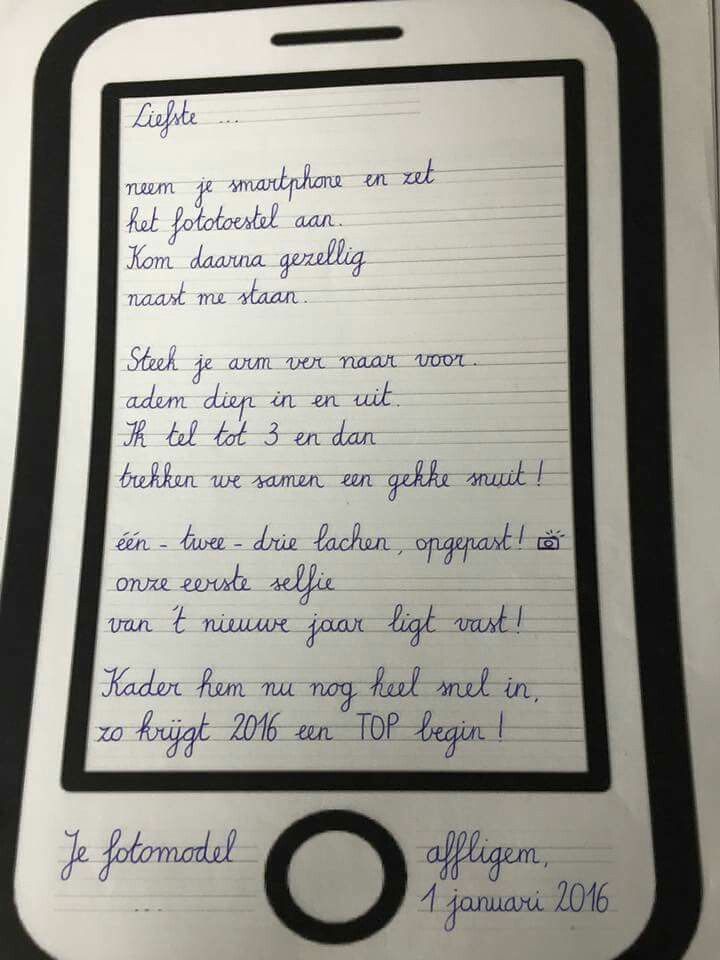 Liefste ...
neem je smartphone en zet
het fototoestel aan.
Kom daarna gezellig
naast me staan.
Steek je arm ver naar voor.
adem diep in en uit.
Ik tel tot 3 en dan
trekken we samen een gekke snuit !
één - twee - drie lachen, opgepast! 📸
onze eerste selfie
van 't nieuwe jaar ligt vast!
Kader hem nu nog heel snel in,
zo krijgt 2016 een TOP begin !
Je fotomodel
...
affligem,
1 januari 2016